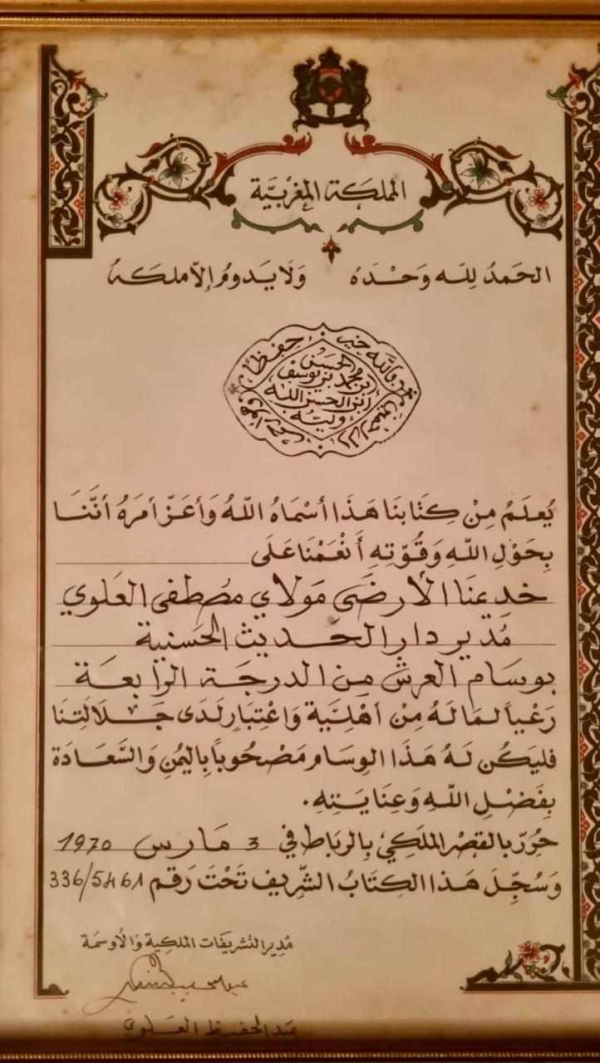 المملكة المغربية
الحَمدُ لِلّه وَحْدَهُ وَلَا يَدومُ إلّا ملكهُ
الحسن
ابن محمد بن يوسف
ابن الحسن الله
وليه
يُعلَمُ مِن كِتَابنَا هَذَا أسْمَاهُ اللّهُ وَأعَزَّ أمرَهُ أنَّنَا
بِحَوْلِ اللّهِ وَقُوّتهِ أَنْعَمْنَا عَلَى
خديمنا الأرضى مولاي مصطفى العلوي
مدير دار الحديث الحسنية
بوسام العرش من الدرجة الرابعة
رَعْياً لمَا لَهُ مِن أهْلِيَّة وَاعْتِبَار لَدَى جَلَالَتنَا
فليَكُن لهُ هَذَا الوِسَام مَصْحُوباً بِاليُمْنِ وَالسَّعَادَة
بِفَضْلِ اللّهِ وَعِنَايَتِهِ.
حُرّرَ بالقَصْرِ المَلَكِيِّ بِالرِّبَاطِ في 3 مَارس 1970
وَسُجِّلَ هَذا الكِتَابُ الشَّرِيفُ تَحْتَ رَقم 336/5461
مُدِير التشريفات الملكية وَالأوسمة
عبد الحفيظ العلوي